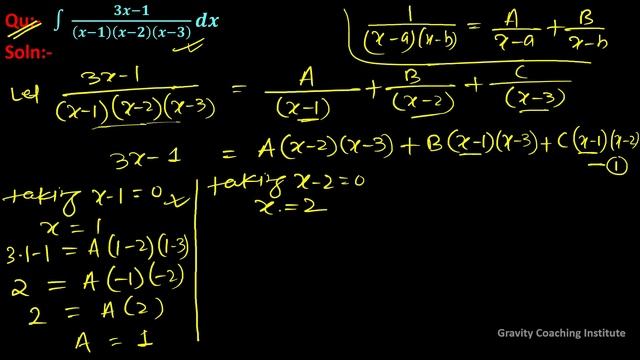 Qu:- ∫ (3x−1)/((x−1)(x−2)(x−3)) dx
1/((x-a)(x-b)) = A/(x-a) + B/(x-b)
Soln:-
Let (3x-1)/((x-1)(x-2)(x-3)) = A/(x-1) + B/(x-2) + C/(x-3)
3x-1 = A(x-2)(x-3) + B(x-1)(x-3) + C(x-1)(x-2)
—①
taking x-1=0
x = 1
3·1-1 = A(1-2)(1-3)
2 = A(-1)(-2)
2 = A(2)
A = 1
taking x-2=0
x = 2
Gravity Coaching Institute